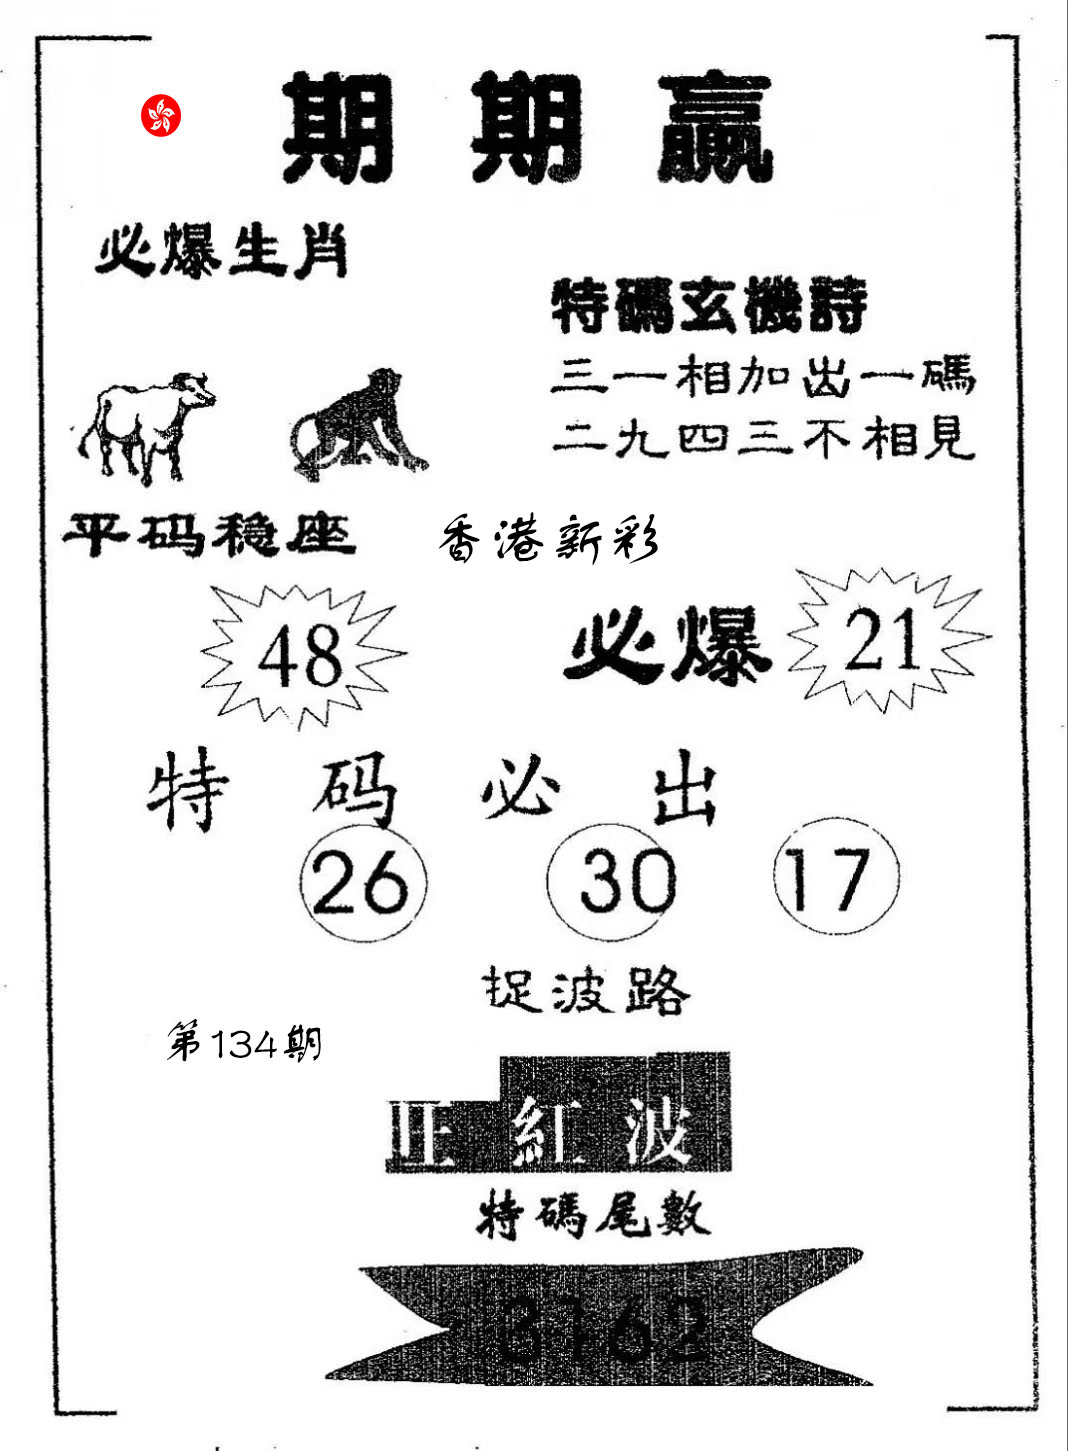 期期贏
必爆生肖
特碼玄機詩
三一相加出一碼
二九四三不相見
平码稳座
香港新彩
48
必爆 21
特码必出
26 30 17
捉波路
第134期
旺紅波
特碼尾數
3162